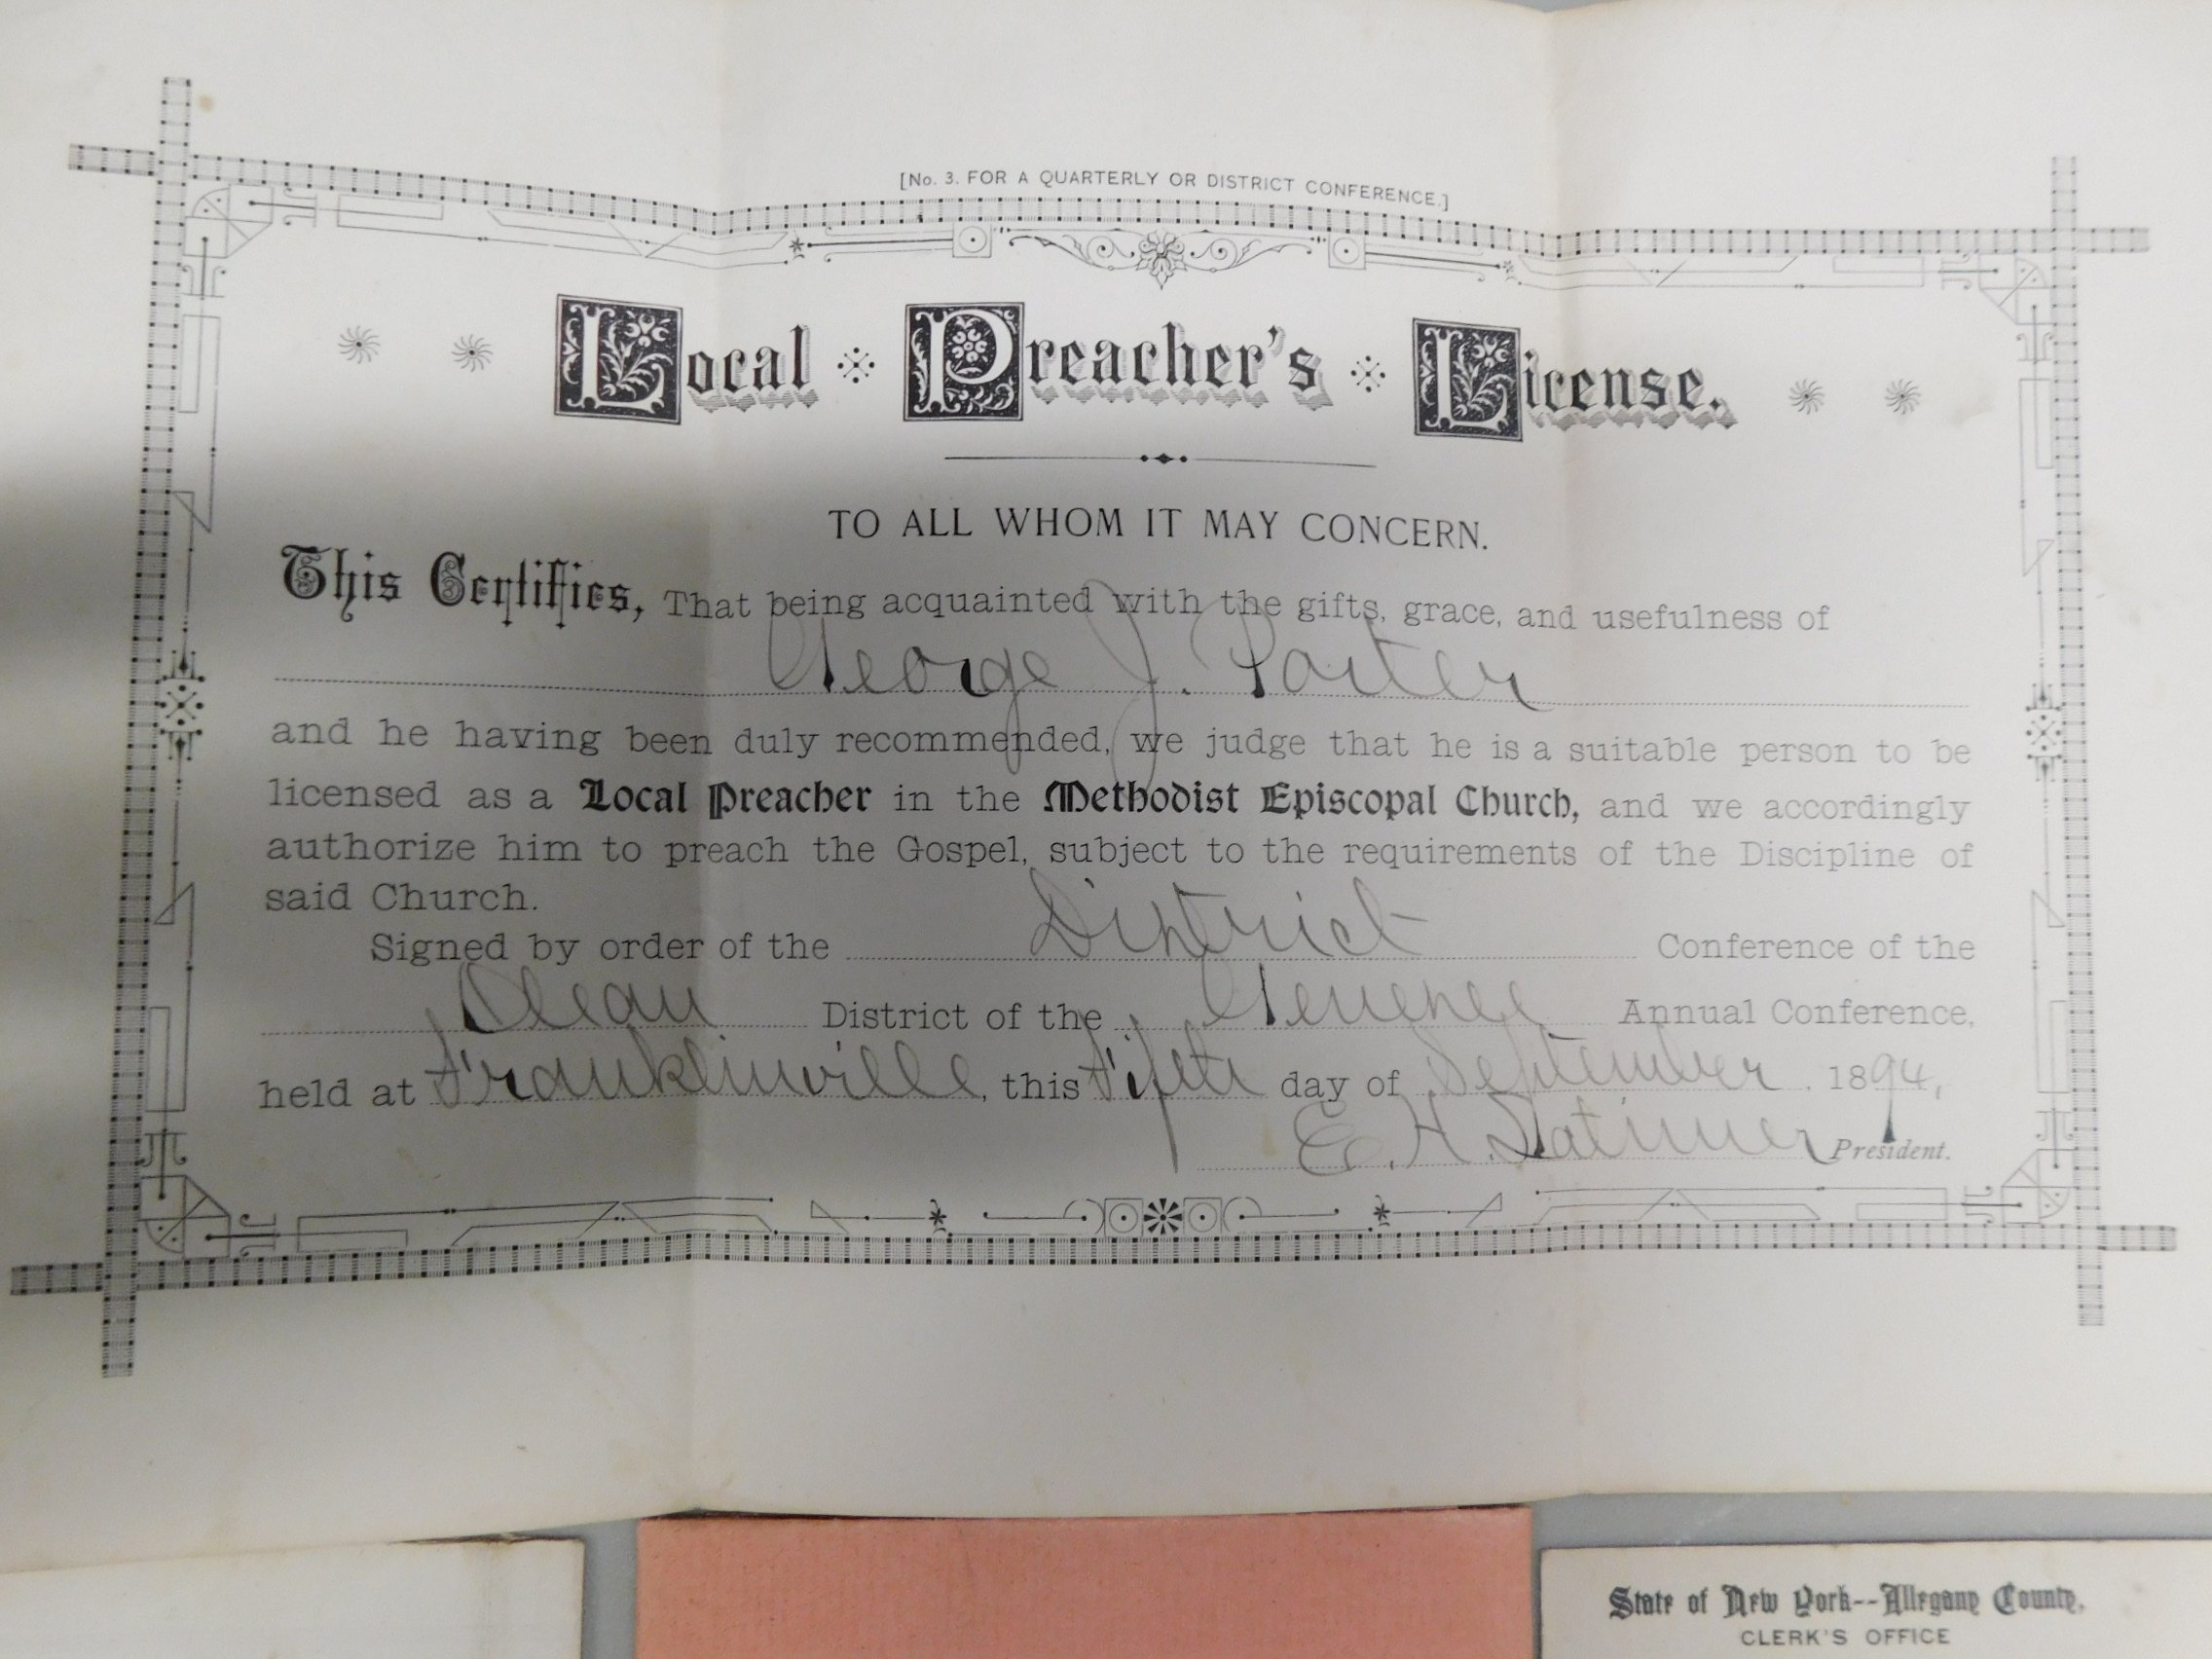 [No. 3. FOR A QUARTERLY OR DISTRICT CONFERENCE.]
Local Preacher's License.
TO ALL WHOM IT MAY CONCERN.
This Certifies, That being acquainted with the gifts, grace, and usefulness of
George J. Porter
and he having been duly recommended, we judge that he is a suitable person to be
licensed as a Local Preacher in the Methodist Episcopal Church, and we accordingly
authorize him to preach the Gospel, subject to the requirements of the Discipline of
said Church.
Signed by order of the District Conference of the
Olean District of the Genesee Annual Conference,
held at Franklinville, this fifth day of September 1894,
E. H. Latimer President.
State of New York--Allegany County,
CLERK'S OFFICE